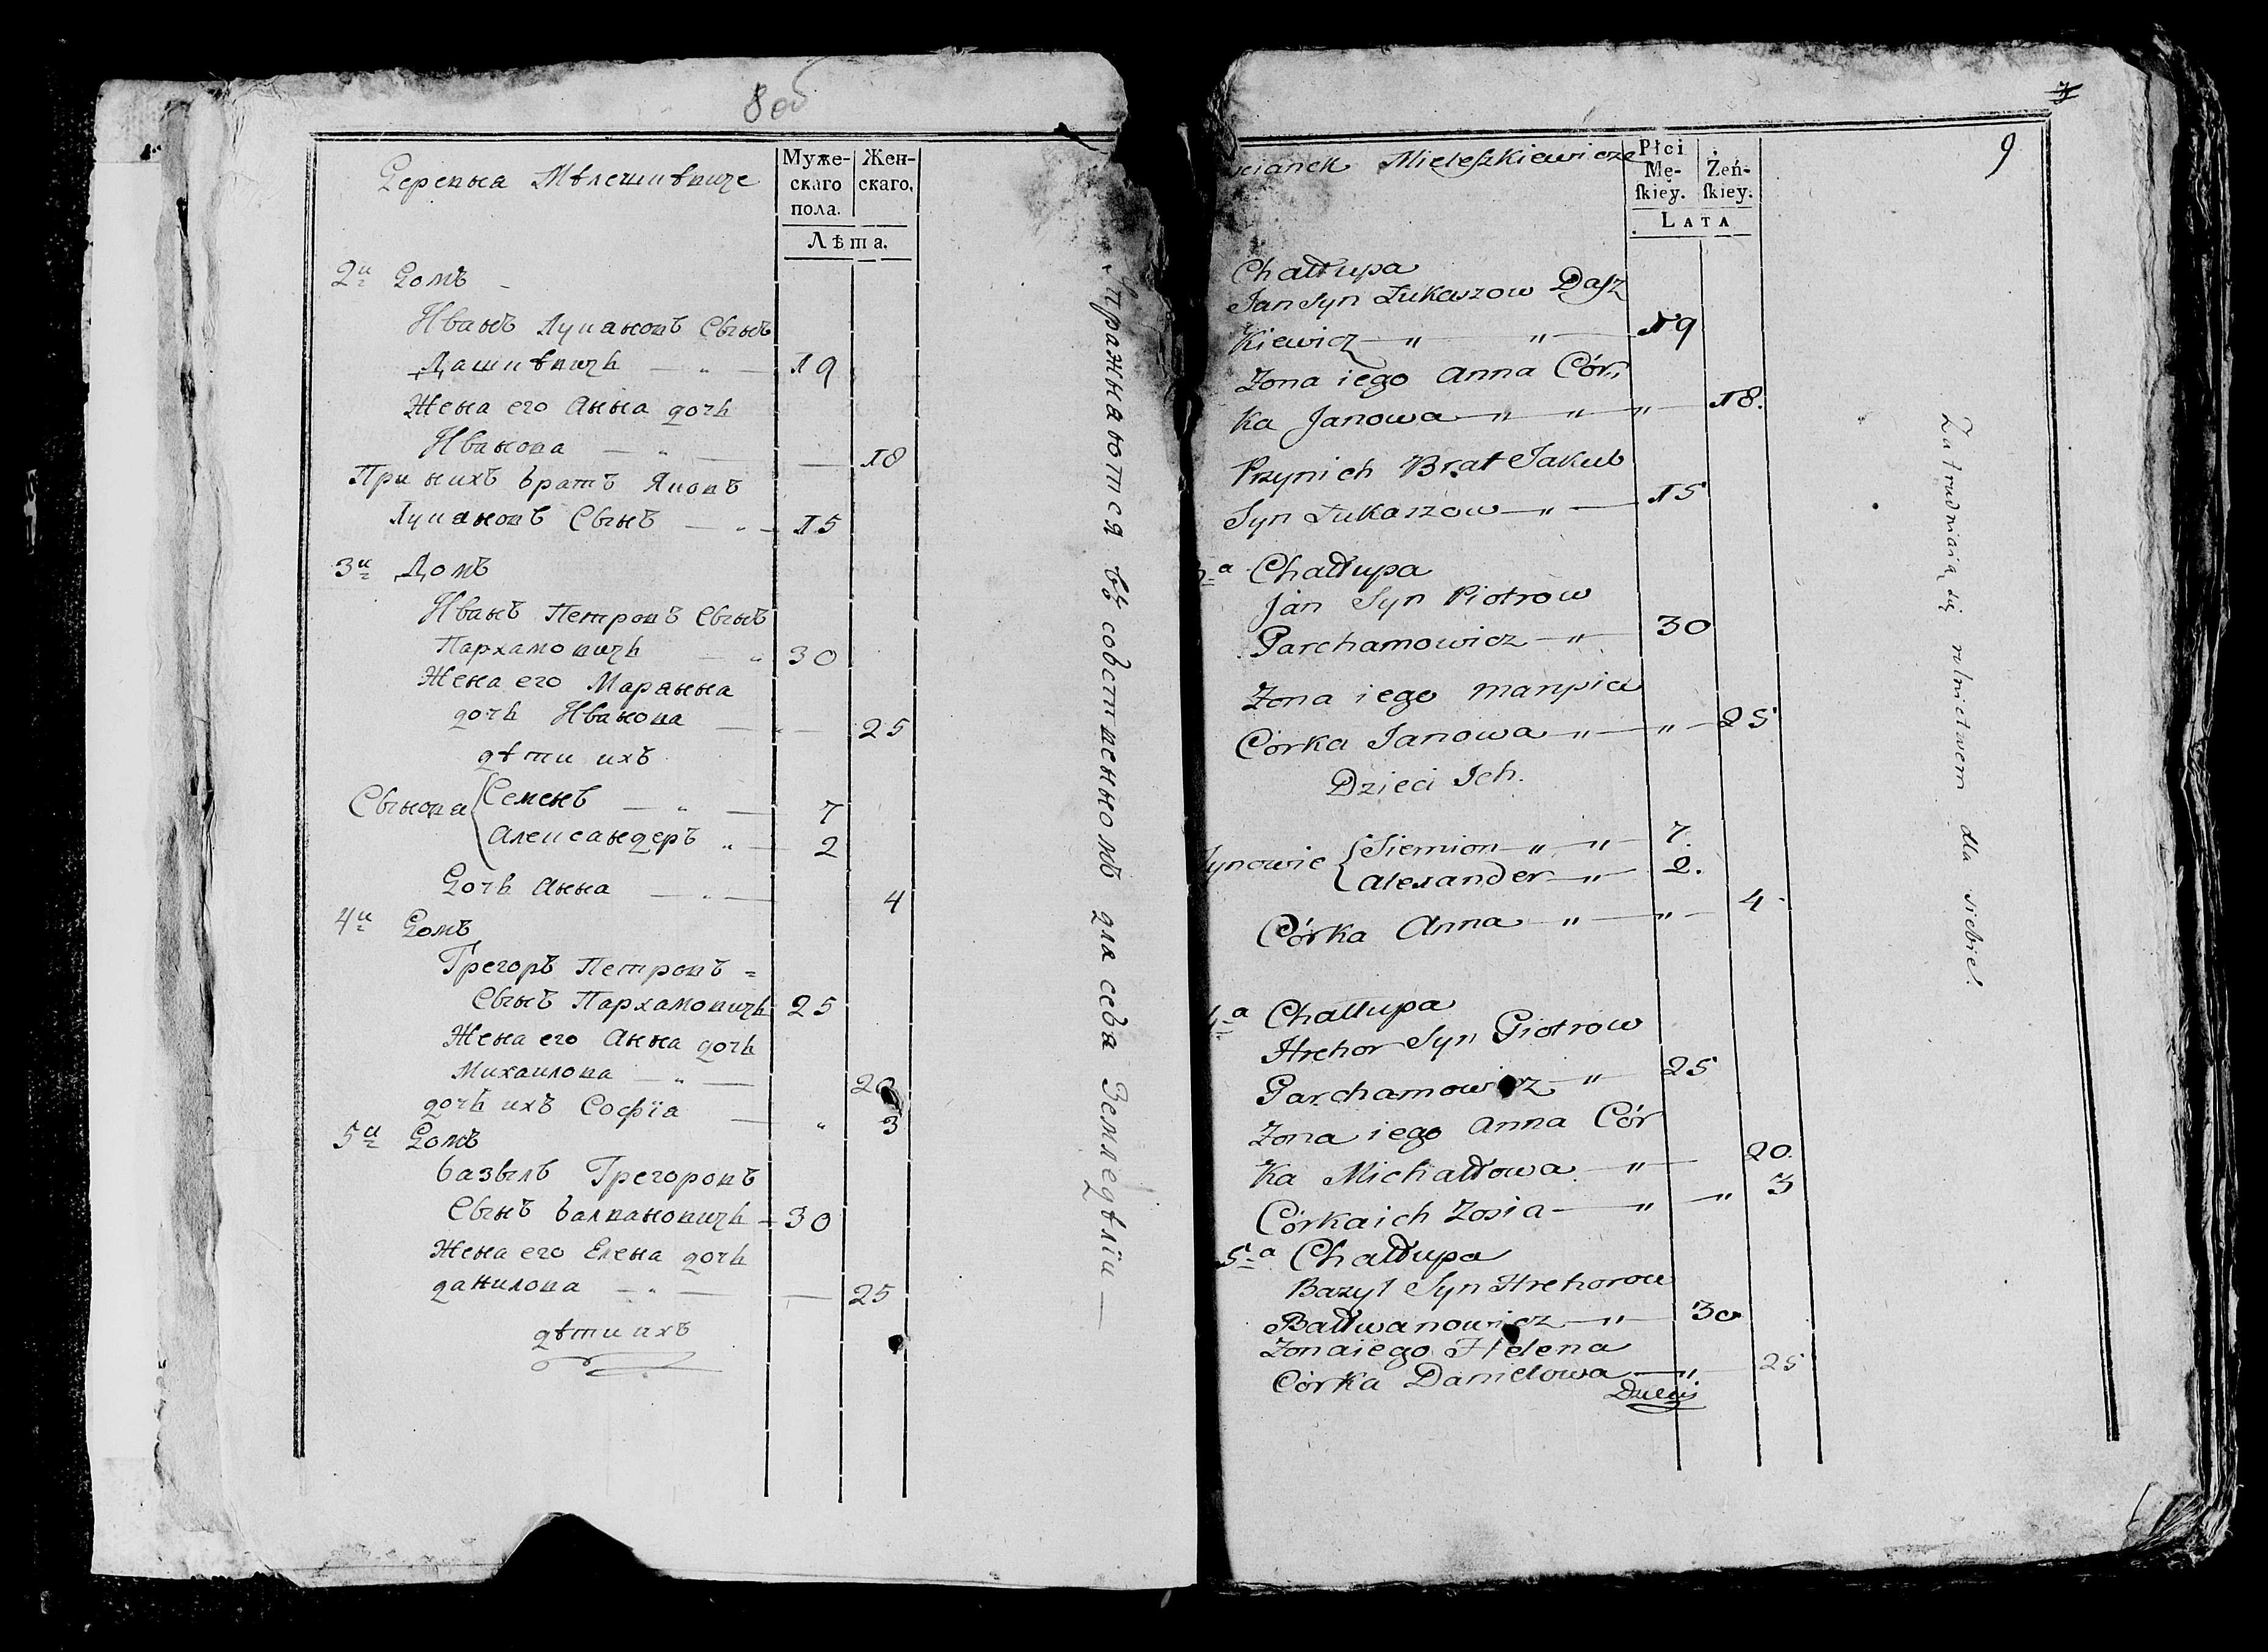 8 об
Деревня Мѣлешкѣвиче
Муже-
скаго
пола.
Жен-
скаго.
Лѣта.
2й Домъ
Иванъ Лукановъ Сынъ
Дашкѣвичь — „ — 19
Жена его Анна дочь
Иванова — „ — — 18
При нихъ братъ Яковъ
Лукановъ Сынъ — „ — 15
3й Домъ
Иванъ Петровъ Сынъ
Пархамовичь — „ 30
Жена его Марянна
дочь Иванова — „ — 25
дѣти ихъ
Сынова { Семенъ — „ — 7
Александеръ „ — 2
Дочь Анна — „ — 4
4й Домъ
Грегоръ Петровъ =
Сынъ Пархамовичь 25
Жена его Анна дочь
Михаилова — „ — 20
дочь ихъ Софїа — „ 3
5й Домъ
Базыль Грегоровъ
Сынъ Балвановичь — 30
Жена его Елена дочь
данилова — „ — — 25
дѣти ихъ
Упражняются въ собственномъ для себя Земледѣлїи —
9
Mieleszkiewicze
Płci
Mę-
skiey.
Żeń-
skiey.
LATA
Chałłupa
Jan Syn Łukaszow Dasz
Kiewicz — „ „ — 19
Zona iego Anna Cór,,
Ka Janowa — „ „ „ — 18.
Przynich Brat Jakub
Syn Łukaszow — „ — 15
a Chałłupa
Jan Syn Piotrow
Parchamowicz — „ 30
Zona iego Maryia
Córka Janowa — „ — „ — 25
Dzieci Ich.
Synowie { Siemion — „ — „ — 7.
Alexander — „ — 2.
Córka Anna — „ — „ — 4
4a Chałłupa
Hrehor Syn Piotrow
Parchamowicz — „ 25
Zona iego Anna Cór
Ka Michałłowa — „ — 20.
Córka ich Zosia — „ — „ 3
5a Chałłupa
Bazyl Syn Hrehorow
Bałłwanowicz — „ — 30
Zona iego Helena
Córka Daniełowa — „ 25
Zatrudniaią się rolnictwem dla siebie.